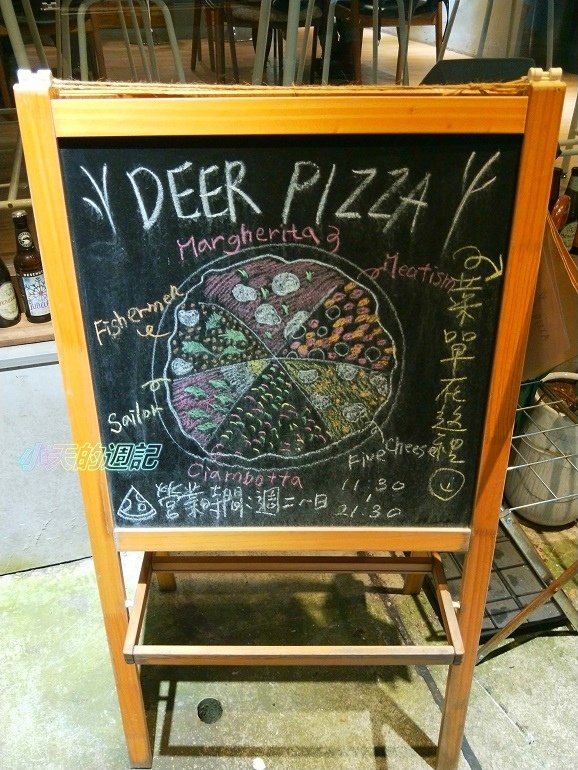 DEER PIZZA
Margherita
Meatism
Fishermen
Sailor
Five Cheese
Ciambotta
菜單在這裡
小天的週記
營業時間:週二~日
11:30
21:30